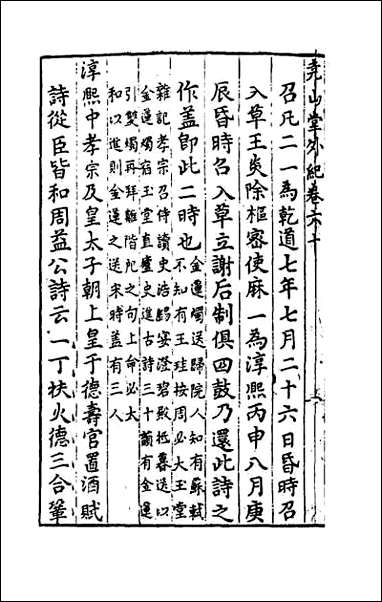 尭山堂外紀卷六十
召凡二一為乾道七年七月二十六日昏時召
入草王炎除樞密使麻一為淳熙丙申八月庚
辰昏時召入草立謝后制俱四鼓乃還此詩之
作蓋卽此二時也
金蓮燭送歸院人知有蘇軾
不知有王珪按周必大玉堂
雜記孝宗召侍讀史浩錫宴澄碧殿抵暮送以
金蓮燭宿玉堂直廬史進古詩三十韻有金蓮
引雙燭再拜離階陀之句上命必大
和以進則金蓮之送宋時蓋有三人
淳熙中孝宗及皇太子朝上皇于德壽宮置酒賦
詩從臣皆和周益公詩云一丁扶火德三合鞏